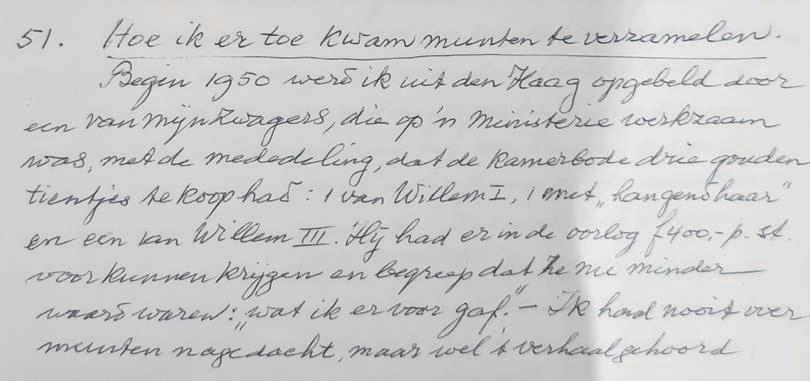 51. Hoe ik er toe kwam munten te verzamelen.
Begin 1950 werd ik uit den Haag opgebeld door
een van mijn zwagers, die op 'n ministerie werkzaam
was, met de mededeling, dat de kamerbode drie gouden
tientjes te koop had: 1 van Willem I, 1 met „hangend haar"
en een van Willem III. Hij had er in de oorlog f400,- p. st.
voor kunnen krijgen en begreep dat ze nu minder
waard waren: „wat ik er voor gaf." - Ik had nooit over
munten nagedacht, maar wel 't verhaal gehoord